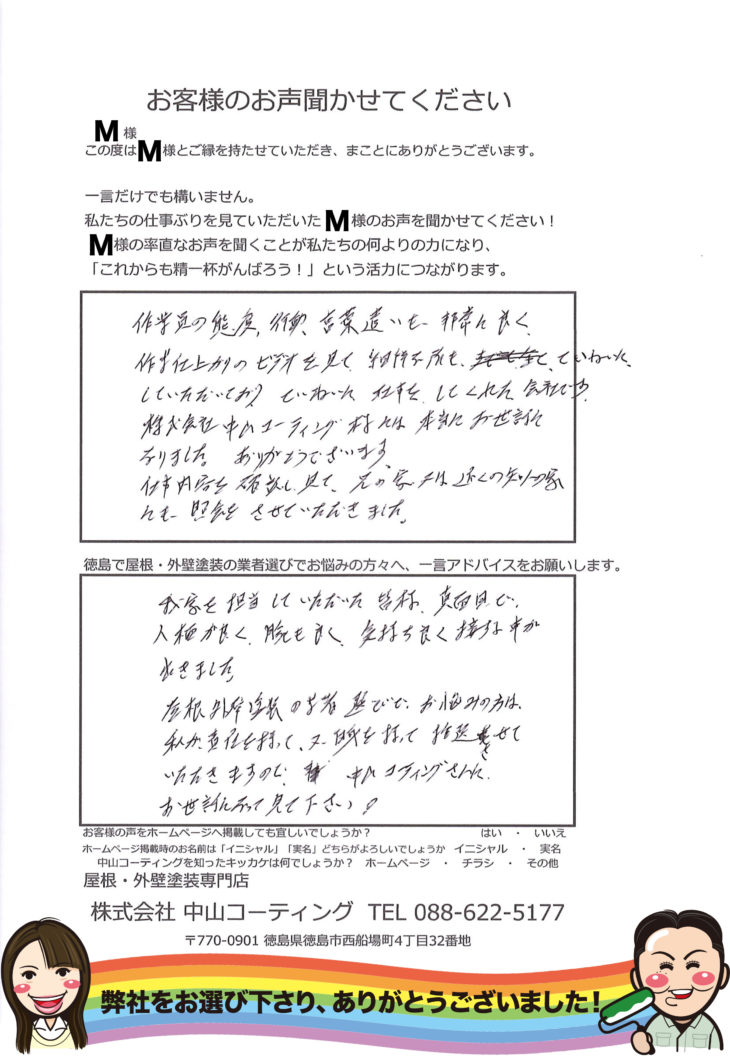 お客様のお声聞かせてください
M様
この度はM様とご縁を持たせていただき、まことにありがとうございます。
一言だけでも構いません。
私たちの仕事ぶりを見ていただいたM様のお声を聞かせてください！
M様の率直なお声を聞くことが私たちの何よりの力になり、
「これからも精一杯がんばろう！」という活力につながります。
作業員の態度、行動、言葉遣いも非常に良く、
作業仕上がりのビデオを見て、ていねいに
していただいており ていねいな仕事をしてくれた会社です
株式会社中山コーティング様には本当にお世話に
なりました。ありがとうございます、
仕事内容を確認し見て、近くの知人の家
にも照会をさせていただきました。
徳島で屋根・外壁塗装の業者選びでお悩みの方々へ、一言アドバイスをお願いします。
我家を担当していただいた皆様、真面目で、
人柄が良く、腕も良く、気持ち良く接する事が
出きました。
屋根外壁塗装の業者選びで、お悩みの方は、
私が責任を持って、又、自信を持って推選させて
いただきますので、中山コーティングさんに
お世話になって見て下さい！
お客様の声をホームページへ掲載しても宜しいでしょうか？ はい ・ いいえ
ホームページ掲載時のお名前は「イニシャル」「実名」どちらがよろしいでしょうか イニシャル ・ 実名
中山コーティングを知ったキッカケは何でしょうか？ ホームページ ・ チラシ ・ その他
屋根・外壁塗装専門店
株式会社 中山コーティング TEL 088-622-5177
〒770-0901 徳島県徳島市西船場町4丁目32番地
弊社をお選び下さり、ありがとうございました！